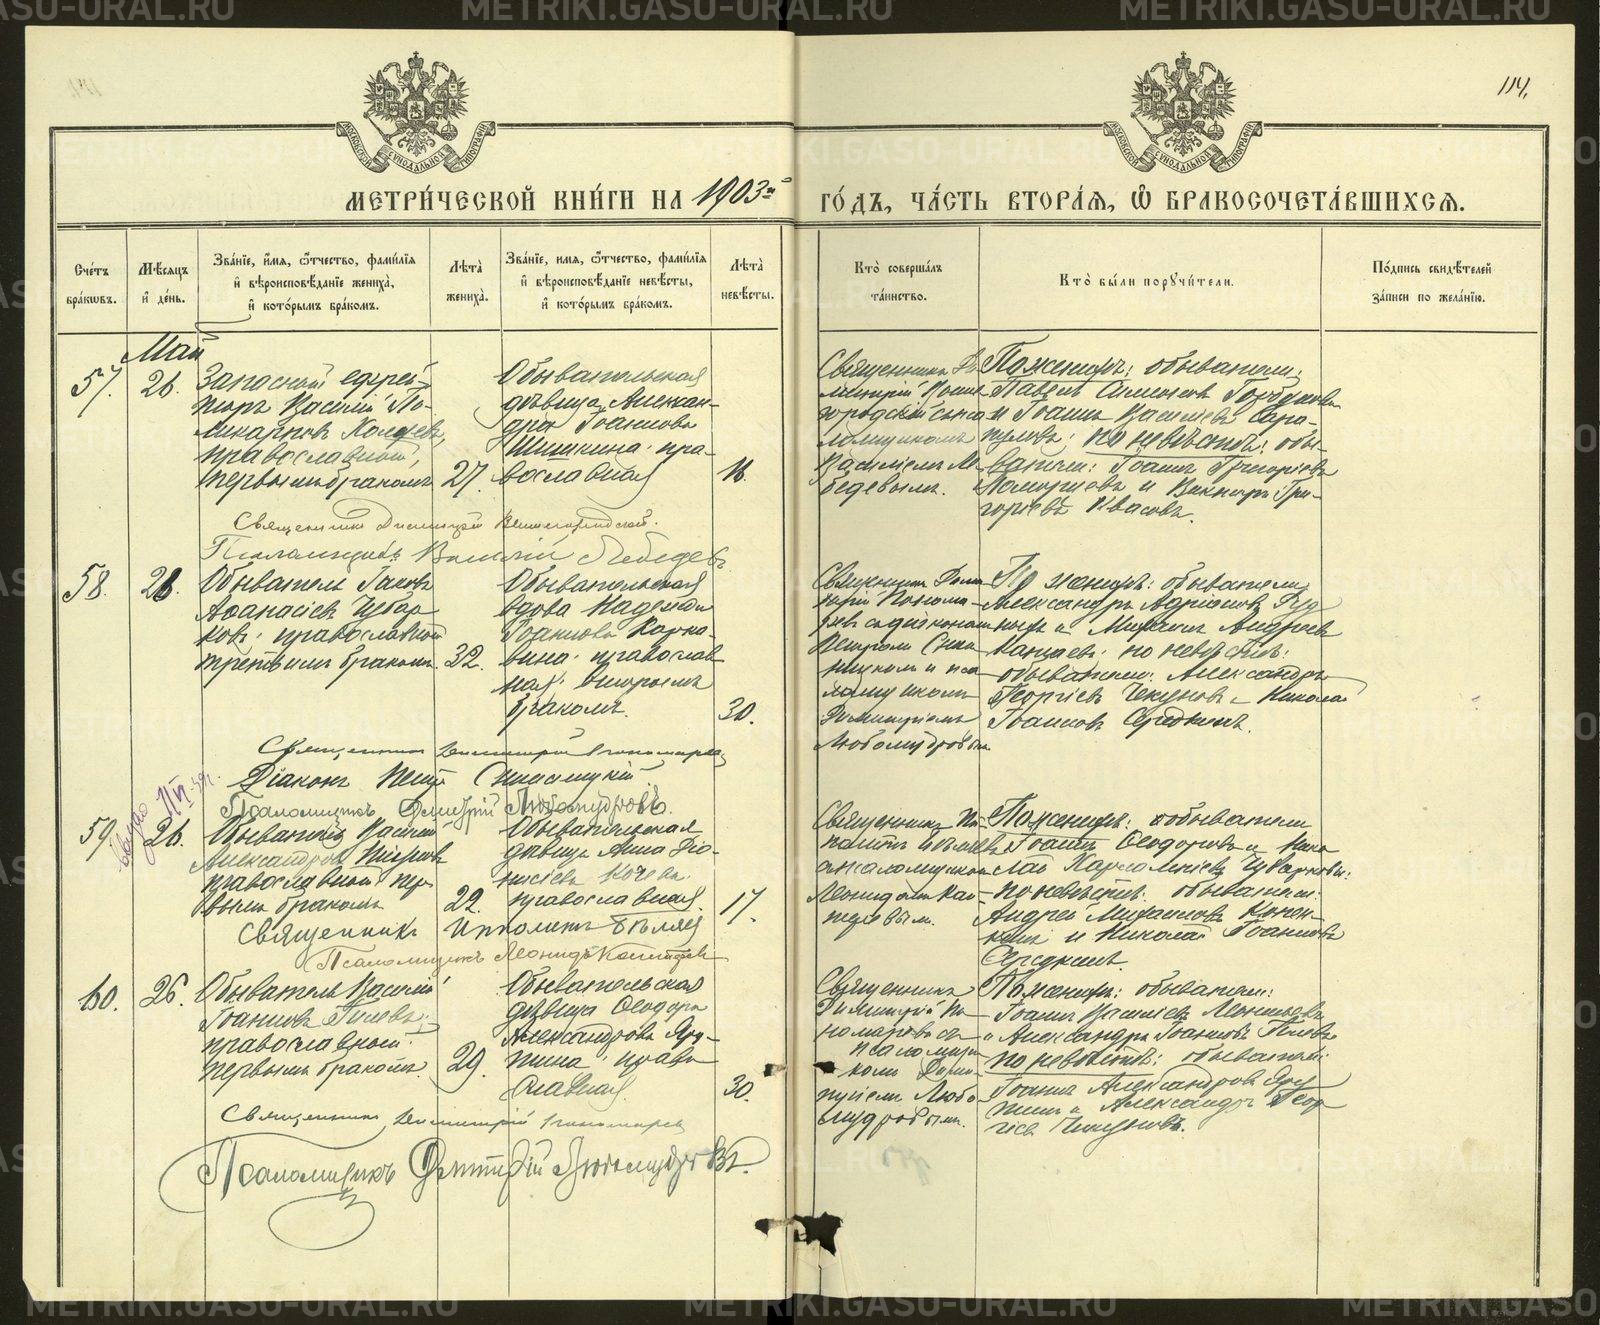 114.
МЕТРИ́ЧЕСКОЙ КНИ́ГИ НА 1903й ГО́ДЪ, ЧА́СТЬ ВТОРА́Я, Ѡ БРАКОСОЧЕТА́ВШИХСЯ.
Сче́тъ бра́ковъ.
Мѣ́сяцъ и де́нь.
Зва́ніе, и́мя, ѻ́тчество, фами́лія и вѣроисповѣ́даніе жениха̀, и кото́рымъ бра́комъ.
Лѣта̀ жениха̀.
Зва́ніе, имя, ѻ́тчество, фами́лія и вѣроисповѣ́даніе невѣ́сты, и кото́рымъ бра́комъ.
Лѣта̀ невѣ́сты.
Кто̀ соверша́лъ та́инство.
Кто̀ бы́ли поручи́тели.
По́дпись свидѣ́телей за́писи по жела́нію.
Май
57. 26.
Запасный ефрей-
торъ Василій По-
ликарповъ
православный,
первымъ бракомъ
27.
Обывательская
дѣвица Алексан-
дра Іоаннова
Шишкина, пра-
вославная
18.
Священникъ Ди-
митрій Выше-
городскій съ пса-
ломщикомъ
Василіемъ Ле-
бедевымъ.
По женихѣ: обыватели:
Павелъ Симеоновъ Горбуновъ
и Іоаннъ Васильевъ Сара-
пуловъ; по невѣстѣ: обы-
ватели: Іоаннъ Григорьевъ
и Викторъ Гри-
горьевъ Квасовъ.
Священникъ Димитрій Вышегородской.
Псаломщикъ Василій Лебедевъ
58. 26.
Обыватель Іаковъ
Аѳанасіевъ Чубар
ковъ, православный
третьимъ бракомъ
32.
Обывательская
вдова Надежда
Іоаннова
православ
ная, вторымъ
бракомъ.
30.
Священникъ Дими-
трій Понома-
ревъ съ діакономъ
Петромъ
и пса-
ломщикомъ
Димитріемъ
Любомудровымъ
По женихѣ: обыватели
Александръ Адріановъ
и Михаилъ Андреевъ
по невѣстѣ:
обыватели: Александръ
Георгіевъ Чекуновъ и Николай
Іоанновъ Середкинъ.
Священникъ Димитрій Пономаревъ
Діаконъ Петръ
Псаломщикъ Дмитрій Любомудровъ.
59. 26.
Обыватель Василій
Александровъ
православный, пер-
вымъ бракомъ
22.
Обывательская
дѣвица Анна Діо-
нисіева Кочева
православная.
17.
Священникъ Ип-
политъ Бѣляевъ
съ псаломщикомъ
Леонидомъ
По женихѣ: обыватели
Іоаннъ Ѳеодоровъ и Нико
лай Чубарковы:
по невѣстѣ: обыватели:
Андрей Михаиловъ
и Николай Іоанновъ
Середкинъ.
Священникъ Ипполитъ Бѣляев
Псаломщикъ Леонидъ
60. 26.
Обыватель Василій
Іоанновъ
православный,
первымъ бракомъ.
29.
Обывательская
дѣвица Ѳеодора
Александрова Яру-
шина, право
славная.
30.
Священникъ
Димитрій По-
номаревъ съ
псаломщи-
комъ Дими-
тріемъ Любо-
мудровымъ.
По женихѣ: обыватели:
Іоаннъ Васильевъ Леонтьевъ
и Александръ Іоанновъ
по невѣстѣ: обыватели:
Іоаннъ Александровъ Яру
шинъ и Александръ Геор
гіевъ Чекуновъ.
Священникъ Димитрій Пономаревъ
Псаломщикъ Дмитрій Любомудровъ.
METRIKI.GASU-URAL.RU